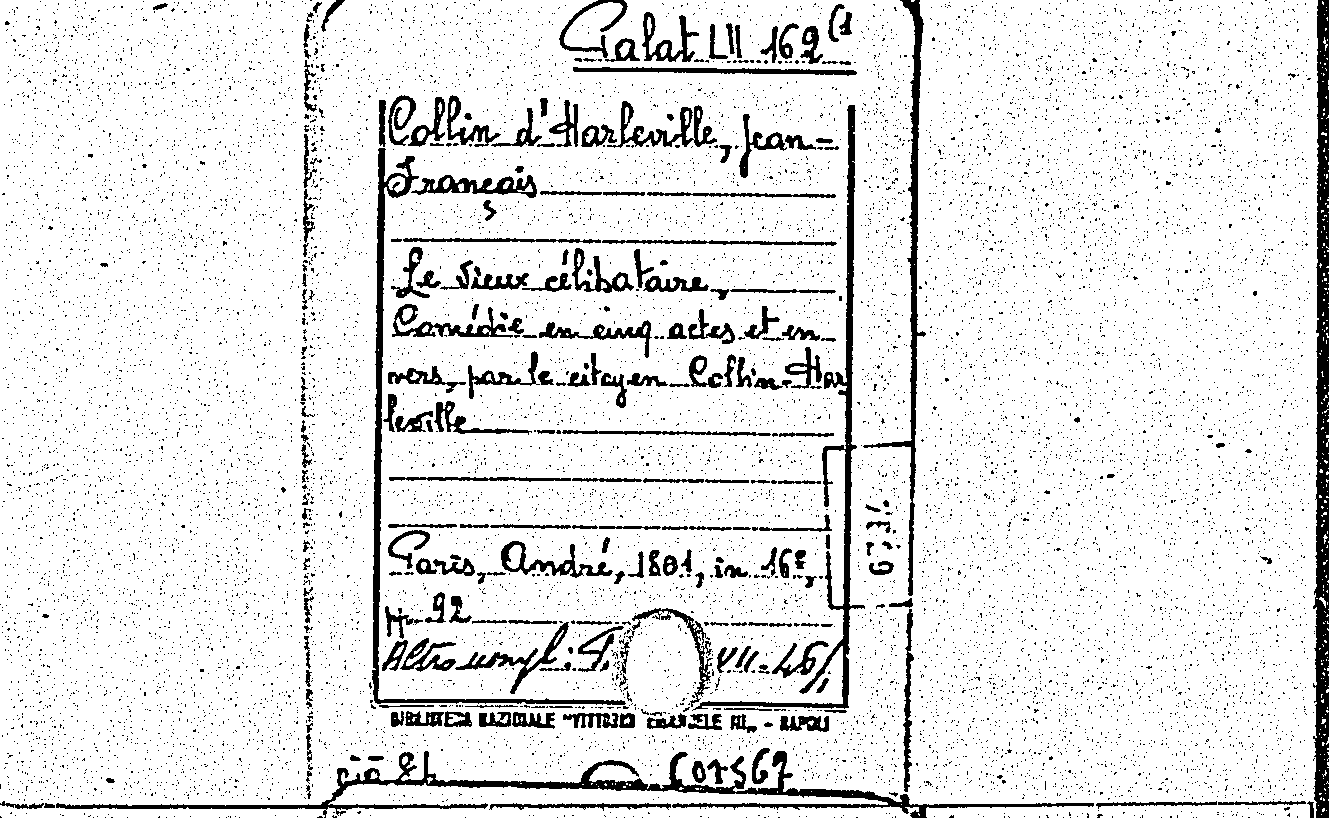 Palat LII 162 (1
Collin d'Harleville, Jean-
François
Le vieux célibataire,
Comédie en cinq actes et en
vers, par le citoyen Collin-Har
leville
Paris, André, 1801, in 16º,
pp. 92
Altro compl: P. VII-46/
BIBLIOTECA NAZIONALE "VITTORIO EMANUELE III" - NAPOLI